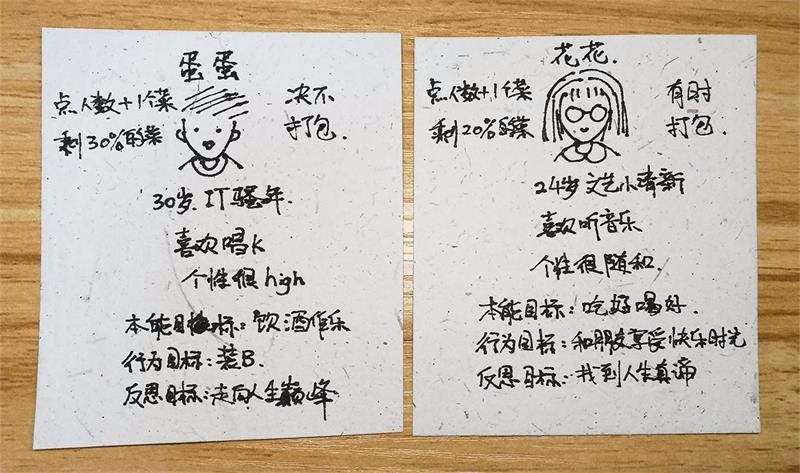 蛋蛋
点人数+1个菜
剩30%的菜
决不
打包.
30岁 IT骚年.
喜欢唱K
个性很high
本能目标: 饮酒作乐
行为目标: 装B.
反思目标: 走向人生巅峰
花花.
点人数+1个菜
剩20%的菜
有时
打包.
24岁 文艺小清新
喜欢听音乐
个性很随和.
本能目标: 吃好喝好.
行为目标: 和朋友享受快乐时光
反思目标: 找到人生真谛